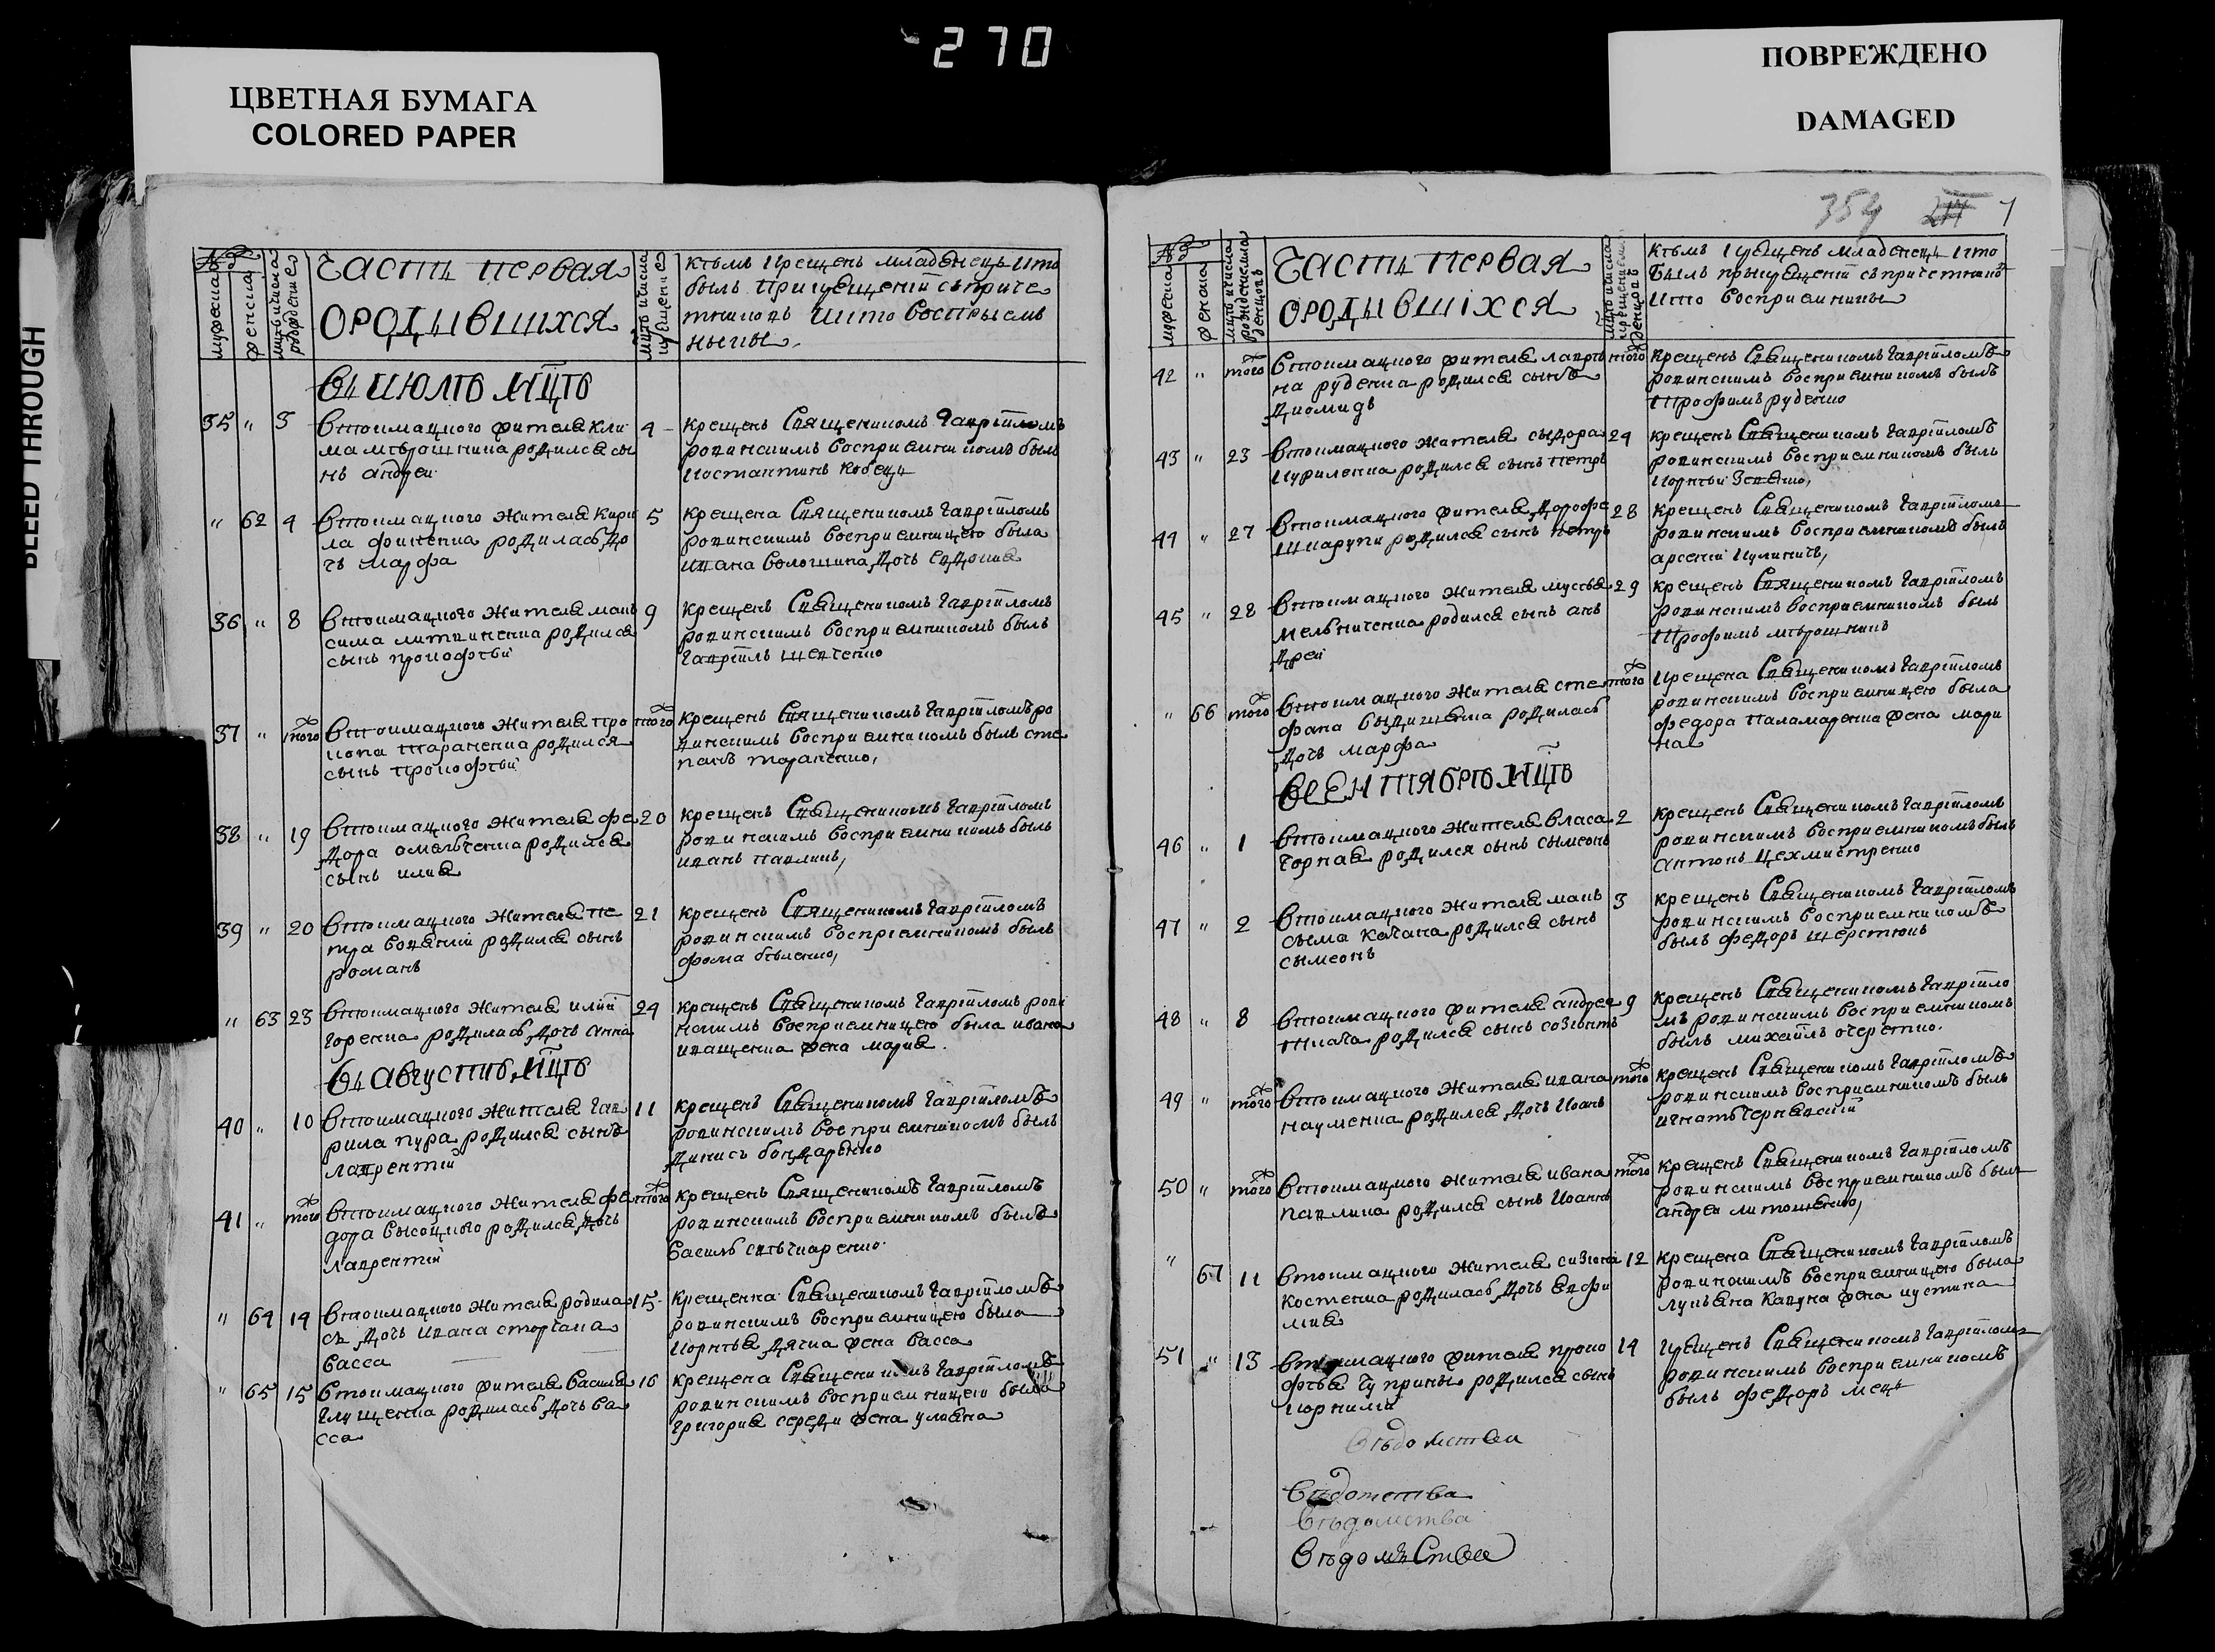 270
ЦВЕТНАЯ БУМАГА
COLORED PAPER
ПОВРЕЖДЕНО
DAMAGED
BLEED THROUGH
№
мужеска
женска
мцъ и числа рожденіе
Часть первая
ородывшихся
мцъ и числа крещеніе
Кѣмъ крещенъ младенецъ ихто
былъ прикрещеній съприче
тникомъ ихто воспрыемъ
ныкы
Въ июлѣ мцѣ
35 " 3 Втоимацкого жителя Кли
ма мѣрошника родился сы
нъ андреи
4 крещенъ Священикомъ Гавріиломъ
ровинскимъ восприемникомъ былъ
Костантинъ Кобецъ
" 62 4 Втоимацкого жителя Кири
ла фоменка родиласъ до
чъ марфа
5 крещена Священикомъ Гавріиломъ
ровинскимъ восприемницею была
ивана волошина дочъ евдокия
36 " 8 Втоимацкого жителя мак
сима литвиненка родился
сынъ прокофѣй
9 крещенъ Священикомъ Гавріиломъ
ровинскимъ восприемникомъ былъ
Гавріилъ шевченко
37 " того Втоимацкого жителя про
копа тараненка родился
сынъ прокофѣй
того крещенъ Священикомъ Гавріиломъ ро
винскимъ восприемникомъ былъ сте
панъ тараненко,
38 " 19 Втоимацкого жителя фе
дора омелъченка родился
сынъ илия
20 крещенъ Священикомъ Гавріиломъ
ровинскимъ восприемникомъ былъ
иванъ павликъ,
39 " 20 Втоимацкого жителя пе
тра родился сынъ
романъ
21 крещенъ Священикомъ Гавріиломъ
ровинскимъ восприемникомъ былъ
фома бѣленко,
" 63 23 Втоимацкого жителя илий
горенка родиласъ дочъ анна
24 крещенъ Священикомъ Гавріиломъ рови
нскимъ восприемницею была ивана
иващенка жена мария.
Въ августѣ мцѣ
40 " 10 Втоимацкого жителя гав
рила пура родился сынъ
лаврентій
11 крещенъ Священикомъ Гавріиломъ
ровинскимъ восприемникомъ былъ
динисъ бондаренко
41 " того Втоимацкого жителя фе
дора высоцкого родился дочъ
лаврентій
того крещенъ Священикомъ Гавріиломъ
ровинскимъ восприемникомъ былъ
Василъ
" 64 14 Втоимацкого жителя родила
съ дочъ ивана
васса
15 крещенна Священикомъ Гавріиломъ
ровинскимъ восприемницею была
Корнѣя дячка жена васса
" 65 15 Втоимацкого жителя василия
глущенка родиласъ дочъ ва
сса
16 крещена Священикомъ Гавріиломъ
ровинскимъ восприемницею была
григория середи жена уляна
354
1
№
мужеска
женска
мцъ и числа рожденія младенцовъ
Часть первая
ородывшіхся
мцъ и числа крещенія младенцовъ
Кѣмъ крещенъ младенецъ ихто
былъ прыкрещеній съпричетныкъ
ихто восприемникы
42 " того Втоимацкого жителя лаврѣ
на руденка родился сынъ
диомидъ
того крещенъ Священикомъ Гавріиломъ
ровинскимъ восприемникомъ былъ
трофимъ руденко
43 " 23 Втоимацкого жителя сыдора
Куриленка родился сынъ петръ
24 крещенъ Священикомъ Гавріиломъ
ровинскимъ восприемникомъ былъ
Корнѣй
44 " 27 Втоимацкого жителя дорофе
шкарупи родился сынъ петръ
28 крещенъ Священикомъ Гавріиломъ
ровинскимъ восприемникомъ былъ
арсеній Кулиничъ,
45 " 28 Втоимацкого жителя мусѣя
мелъниченка родился сынъ ан
дрей
29 крещенъ Священикомъ Гавріиломъ
ровинскимъ восприемникомъ былъ
трофимъ мѣрошникъ
" 66 того Втоимацкого жителя сте
фана родиласъ
дочъ марфа
того крещена Священикомъ Гавріиломъ
ровинскимъ восприемницею была
федора паламаренка жена мари
на
Всентябрѣ мцѣ
46 " 1 Втоимацкого жителя власа
чорная родился сынъ сымеонъ
2 крещенъ Священикомъ Гавріиломъ
ровинскимъ восприемникомъ былъ
антонъ цехмистренко
47 " 2 Втоимацкого жителя мак
сыма качана родился сынъ
сымеонъ
3 крещенъ Священикомъ Гавріиломъ
ровинскимъ восприемникомъ
былъ федоръ шерстюкъ
48 " 8 Втоимацкого жителя андрея
ткача родился сынъ созонтъ
9 крещенъ Священикомъ Гавріило
мъ ровинскимъ восприемникомъ
былъ михаилъ очеретко.
49 " того Втоимацкого жителя ивана
науменка родился дочъ Иоанъ
того крещенъ Священикомъ Гавріиломъ
ровинскимъ восприемникомъ былъ
игнатъ чернявскій
50 " того Втоимацкого жителя ивана
павлика родился сынъ Иоаннъ
того крещенъ Священикомъ Гавріиломъ
ровинскимъ восприемникомъ былъ
андреи литошенко,
" 67 11 Втоимацкого жителя
Костенка родиласъ дочъ евфи
мия
12 крещена Священикомъ Гавріиломъ
ровинскимъ восприемницею была
лукъяна Кавуна жена иустина
51 " 13 Втоимацкого жителя проко
фѣя Чуприны родился сынъ
Корнилій
14 Крещенъ Священикомъ Гавріиломъ
ровинскимъ восприемникомъ
былъ федоръ мецъ
Вѣдомства
Вѣдомства
Вѣдомства
Вѣдомъства